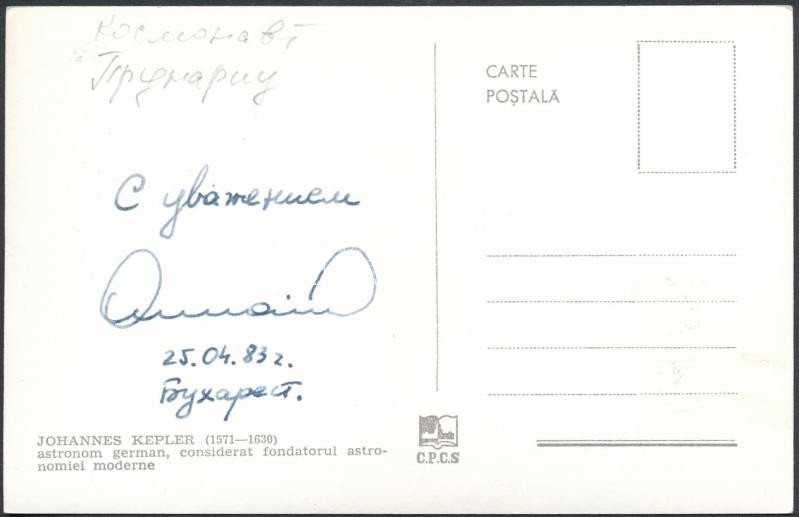 Космонавт
Прунариу
С уважением
25.04.83 г.
Бухарест.
JOHANNES KEPLER (1571—1630)
astronom german, considerat fondatorul astro-
nomiei moderne
CARTE
POȘTALĂ
C.P.C.S